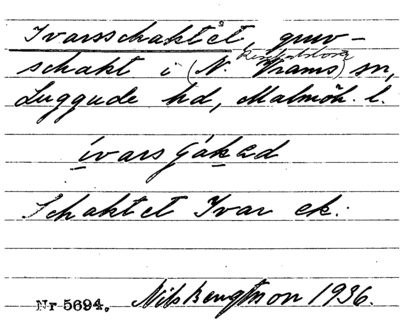 Ivarsschaktet, gruv-
schakt i (N. Vrams) sn,
Luggude hd, Malmöh. l.
Schaktet Ivar ek.
Nr 5694. Nils Bengtson 1936.